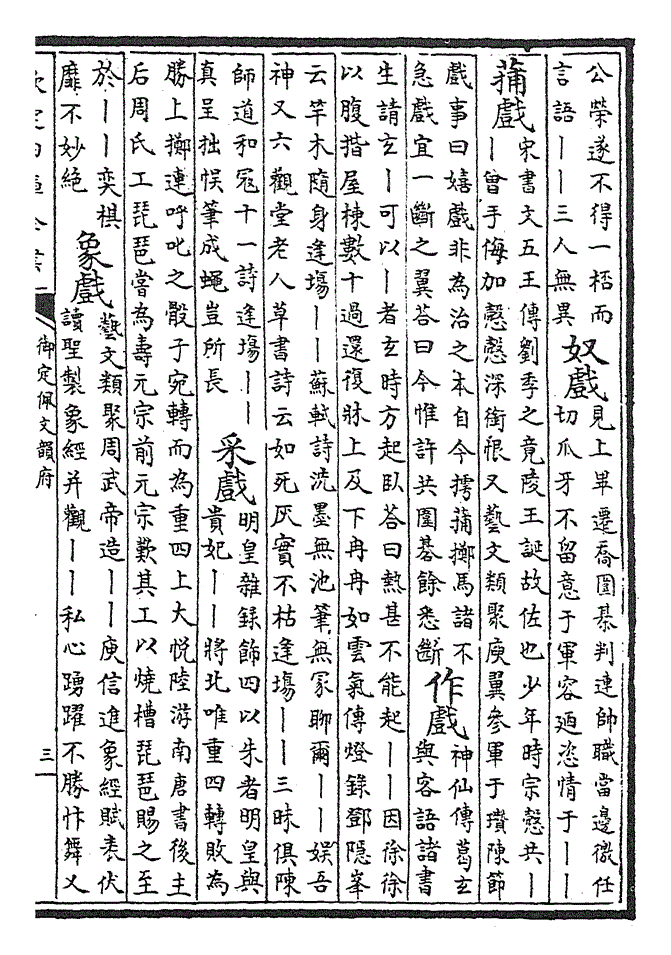 公榮遂不得一桮而
言語｜｜三人無異
奴戲
見上畢遷喬圍棊判逹帥職當邊徼任
切瓜牙不留意于軍容廼恣情于｜｜
蒱戲
宋書文五王傳劉季之竟陵王誕故佐也少年時宗慤共｜
｜曾手侮加慤慤深銜恨又藝文類聚庾翼參軍于瓚陳節
戲事曰嬉戲非為治之本自今摴蒱擲馬諸不
急戲宜一斷之翼荅曰今惟許共圍棊餘悉斷
作戲
神仙傳葛玄
與客語諸書
生請玄｜可以｜者玄時方起臥荅曰熱甚不能起｜｜因徐徐
以腹揩屋棟數十過還復牀上及下冉冉如雲氣傳燈錄鄧隠峯
云竿木隨身逢塲｜｜蘇軾詩洗墨無池筆無冢聊爾｜｜娯吾
神又六觀堂老人草書詩云如死灰實不枯逢塲｜｜三昧俱陳
師道和冦十一詩逢塲｜｜
真呈拙悮筆成蠅豈所長
采戲
明皇雜錄飾四以朱者明皇與
貴妃｜｜將北唯重四轉敗為
勝上擲連呼叱之骰子宛轉而為重四上大悅陸游南唐書後主
后周氏工琵琶嘗為壽元宗前元宗歎其工以燒槽琵琶賜之至
於｜｜奕棋
靡不妙絕
象戲
藝文類聚周武帝造｜｜庾信進象經賦表伏
讀聖製象經并觀｜｜私心踴躍不勝忭舞又
欽定四庫全書
御定佩文韻府
三